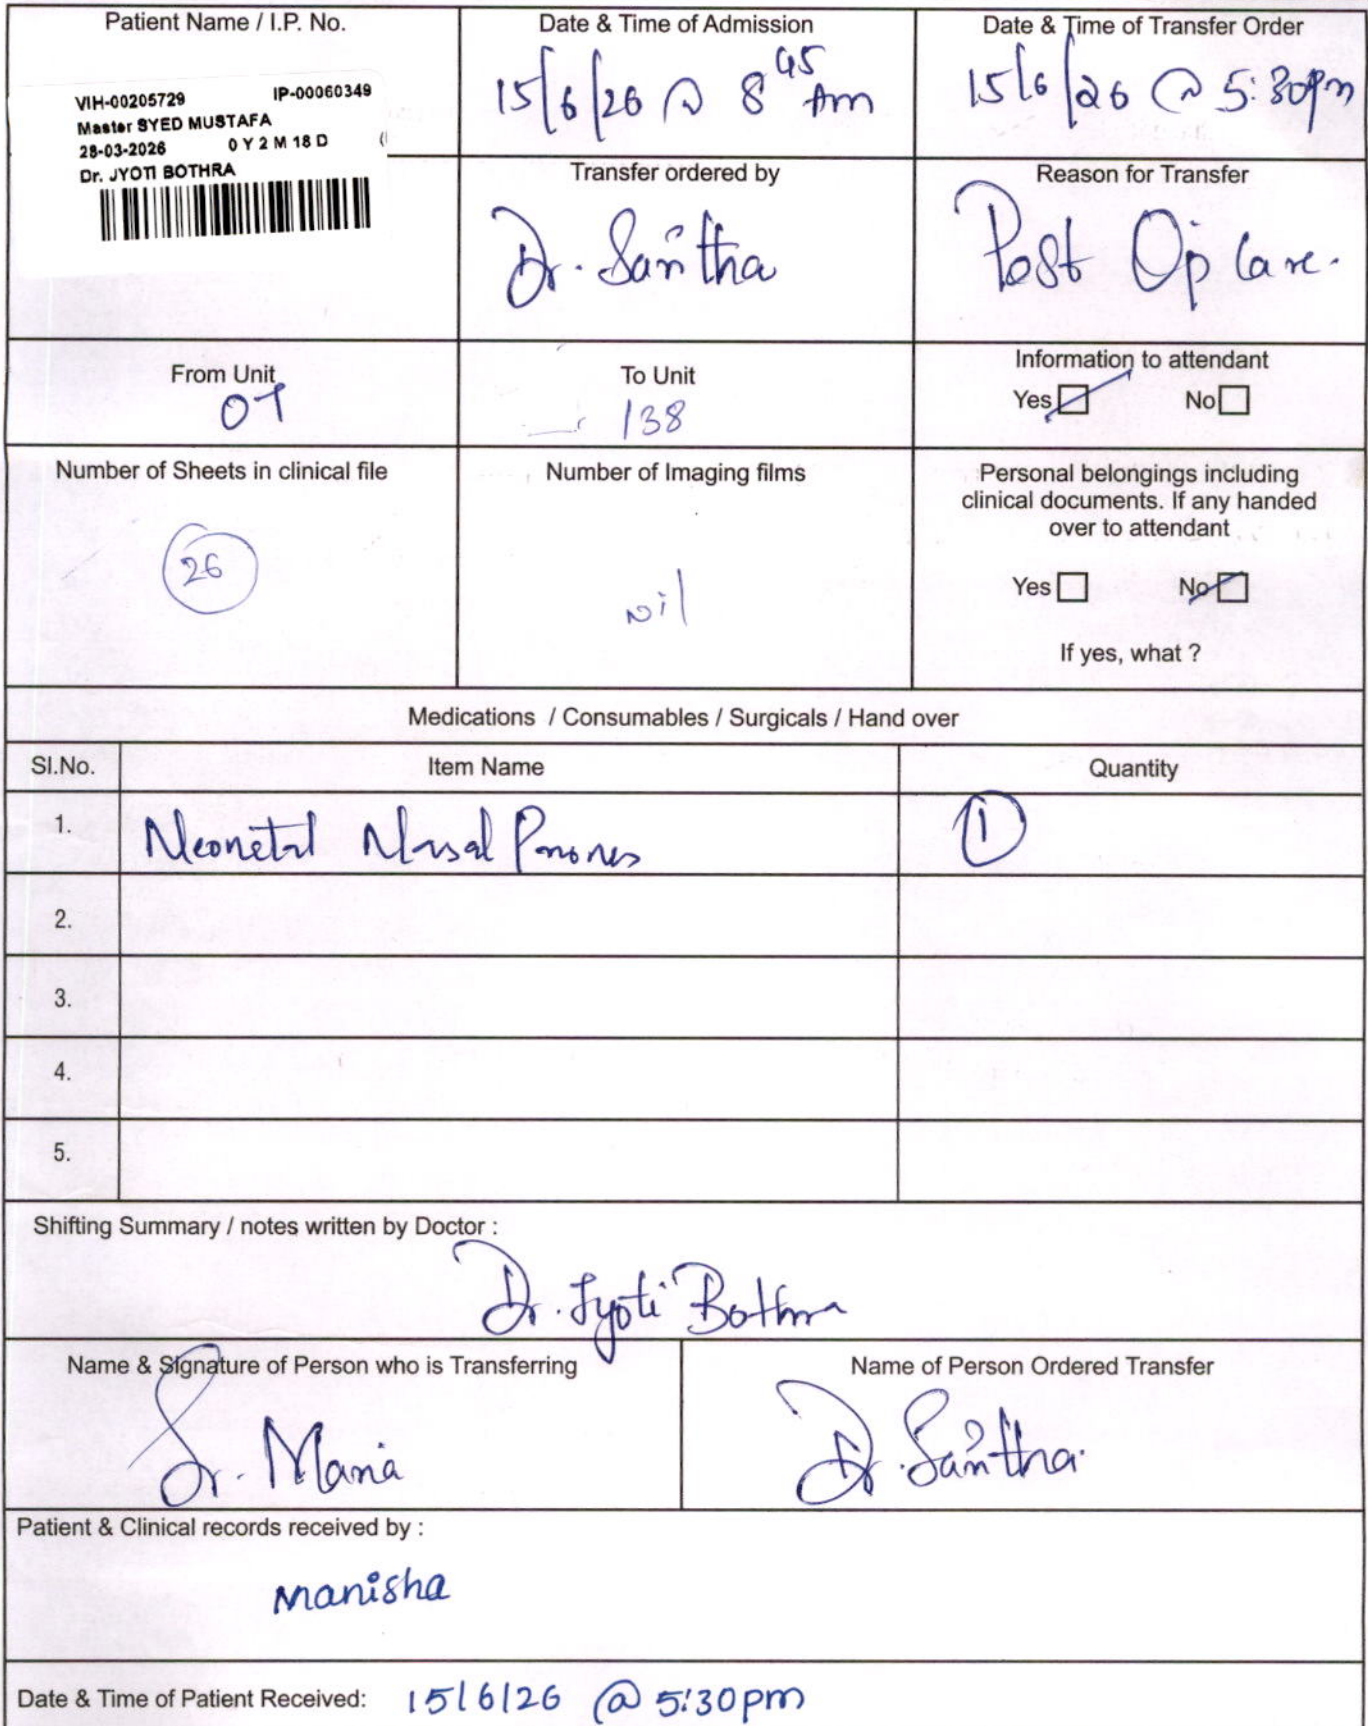 Patient Name / I.P. No.
VIH-00205729 IP-00060349
Master SYED MUSTAFA
28-03-2026 0 Y 2 M 18 D
Dr. JYOTI BOTHRA
Date & Time of Admission
15/6/26 @ 8 45 Am
Date & Time of Transfer Order
15/6/26 @ 5:30pm
Transfer ordered by
Dr. Santha
Reason for Transfer
Post Op Care.
From Unit
OT
To Unit
138
Information to attendant
Yes No
Number of Sheets in clinical file
26
Number of Imaging films
Nil
Personal belongings including
clinical documents. If any handed
over to attendant
Yes No
If yes, what ?
Medications / Consumables / Surgicals / Hand over
Sl.No. Item Name Quantity
1. Neonetal Nasal 1
2.
3.
4.
5.
Shifting Summary / notes written by Doctor :
Dr. Jyoti Bothra
Name & Signature of Person who is Transferring
Sr. Maria
Name of Person Ordered Transfer
Dr. Santha
Patient & Clinical records received by :
Manisha
Date & Time of Patient Received: 15/6/26 @ 5:30pm